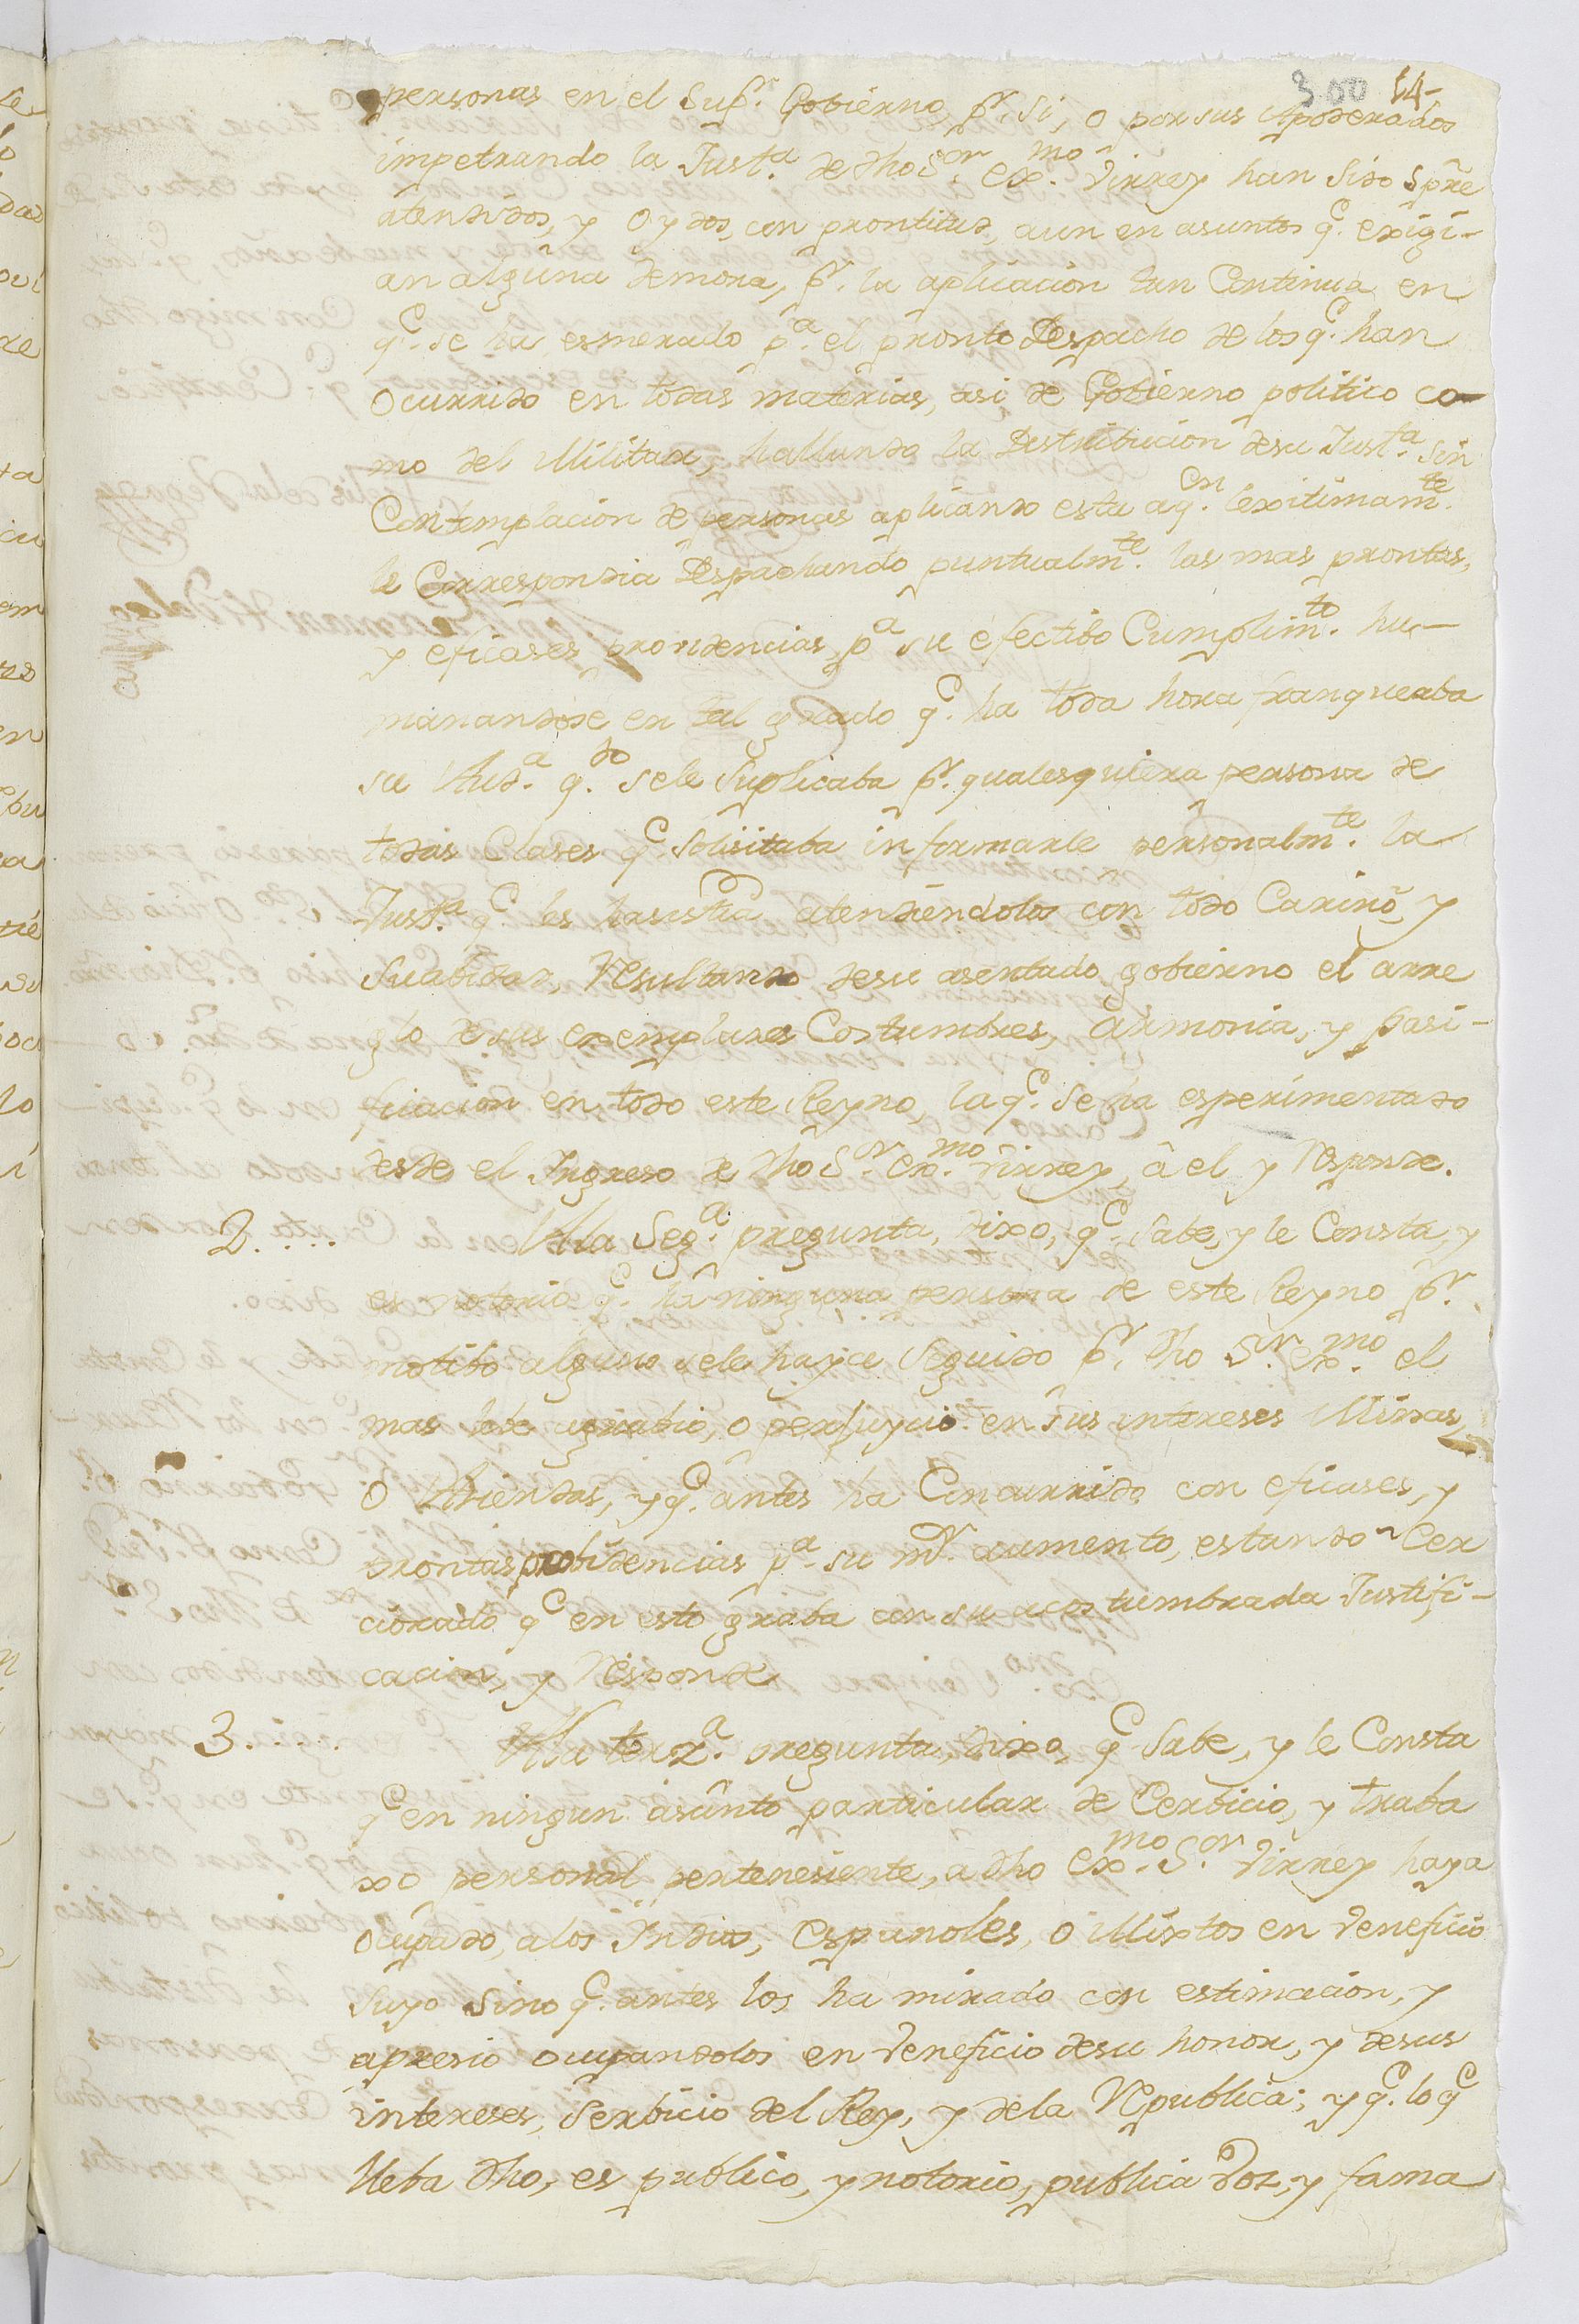 300 14-
personas en el Supr. Gobierno, pr. si, o por sus Apoderados
impetrando la Justa. de dho Sor. Exmo. Virrey han sido spre
atendidos, y oydos, con prontitud, aun en asuntos qe. exigi-
an alguna demora, pr. la aplicacion tan Continua en
qe. se ha esmerado pa. el pronto Despacho de los qe. han
ocurrido en todas materias, asi de Gobierno politico co-
mo del Militar, hallando la Distribucion desu Justa. sin
Contemplacion de personas aplicando esta aqn. lexitimamte.
le Correspondia Despachando puntualmte. las mas prontas,
y eficases providencias, pa. su efectibo Cumplimto. hu-
manandose en tal grado qe. ha toda hora franqueaba
su Auda. qdo. sele Suplicaba pr. qualesquiera persona de
todas Clases qe. Solisitaba informarle personalmte. la
Justa. qe. les hasistia atendiendolos con todo Cariño, y
Suabidad, Resultando desu asertado gobierno el arre
glo de sus exemplares Costumbres, armonia, y pasi-
ficacion en todo este Reyno, la qe. se ha esperimentado
desde el Ingreso de dho Sor. Exmo. Virrey, â el y Responde.
2.... Ala Sega. pregunta, dixo, qe. Sabe, y le Consta, y
es notorio qe. hâ ninguna persona de este Reyno pr.
motibo alguno sele hayce Seguido pr. dho Sor. Exmo. el
mas lebe agrabio, o perjuycio en sus intereses Minas,
o Asiendas, y qe. ântes ha Concurrido con eficases, y
prontas probidencias pa. su mr. aumento, estando Cer
ciorado qe en esto graba con su acostumbrada Justifi-
cacion, y Responde
3..... Ala tersa. pregunta, dixo, qe Sabe, y le Consta
qe en ningun asunto particular de Cerbicio, y traba
xo personal pertenesiente, a dho Exmo. Sor. Virrey haya
ocupado, alos Indios, españoles, o Mixtos en veneficio
suyo sino qe. antes los ha mirado con estimacion, y
apresio ocupandolos en veneficio desu honor, y desus
intereses, Serbicio del Rey, y dela Republica; y qe. lo qe
lleba dho, es publico, y notorio, publica voz, y fama